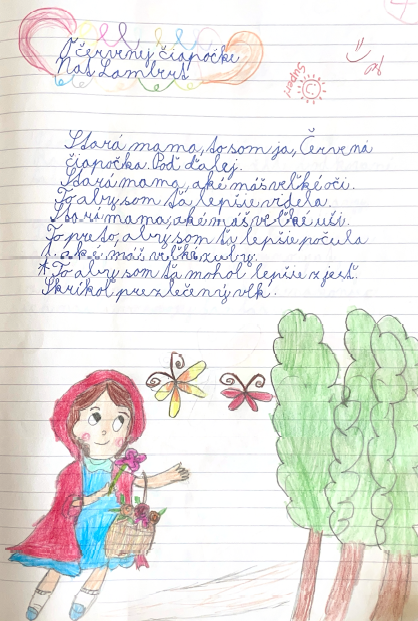 O červenej čiapočke
Nat Lambert
Super!
Stará mama, to som ja, Červená
čiapočka. Poď ďalej.
Stará mama, aké máš veľké oči.
To aby som ťa lepšie videla.
Stará mama, aké máš veľké uši.
To preto, aby som ťa lepšie počula
a aké máš veľké zuby.
*To aby som ťa mohol lepšie zjesť.
Skríkol prezlečený vlk.